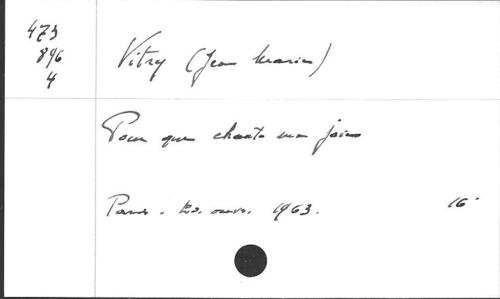 473
896
4
Vitry (Jean Marie)
Pour que chante ma joie
Paris. Ed. ouvr. 1963. 16°